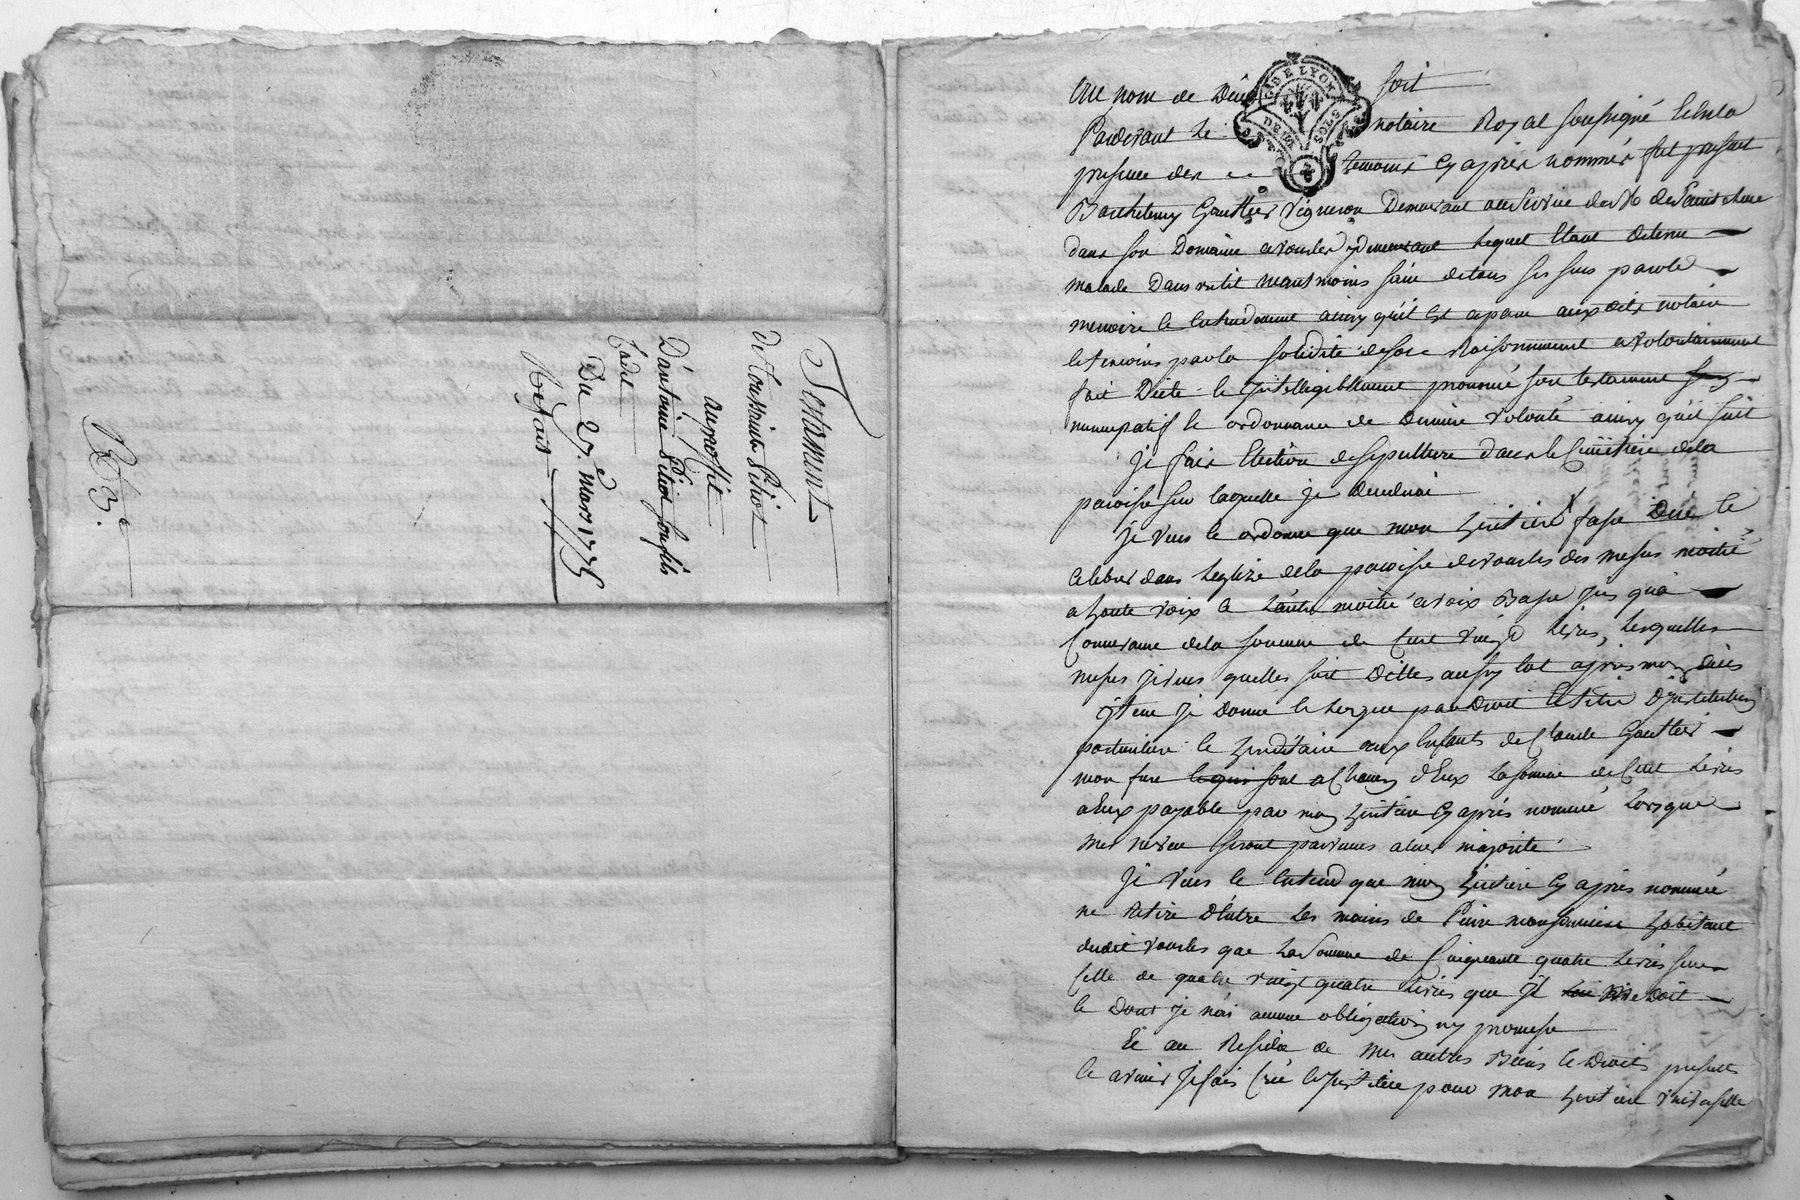 Testament
de Toussaints Piliot
au proffit
D'antoine Piliot son fils
Cadet
Du 27.e mars 1735
Refait
Au nom de Dieu soit
G. DE LYON
DEUX SOLS
Pardevant le notaire Royal soussigné et en la
presence des temoins cy apres nommés fut present
Barthelemy Gauttier vigneron Demeurant au service de
dans son Domaine a vourles lequel Etant detenu
malade Dans un lit neantmoins sain de tous ses sens parole
memoire et entendement ainsy qu'il est aparu auxdits notaire
et temoins par la solidité de son Raisonnement a volontairement
fait Dicté et Intelligiblement prononcé son testament
nuncupatif et ordonnance de Derniere volonté ainsy qu'il suit
Je fais Election de sepulture dans le Cimetiere de la
paroisse sur laquelle je decederai
Je veus et ordonne que mon heritier fasse Dire et
celebrer dans leglize de la paroisse de vourles des messes moitié
a haute voix et l'autre moitié a voix Basse Jus qu'a
Concurance de la somme de Cent vingt Livres, Lesquelles
messes je veus quelles soit Dittes aussy tot apres mon déces
Item Je Donne et Legue par Droit et titre D'Institution
particuliere et hereditaire aux Enfants de Claude Gauttier
mon frere a Chacun d'Eux La somme de Cent Livres
a Eux payable par mon heritier cy apres nommé Lorsque
mes neveu seront parvenus a leur majorité
Je veus et entend que mon heritier cy apres nommé
ne Retire d'entre Les mains de Pierre habitant
dudit vourles que La Somme de Cinquante quatre Livres sur
Celle de quatre vingt quatre Livres que Il me Doit
et Dont je n'ai aucune obligation ny promesse
Et au Residu de mes autres Biens et Droits presents
et avenir Je fais Crée et Institue pour mon heritier universelle